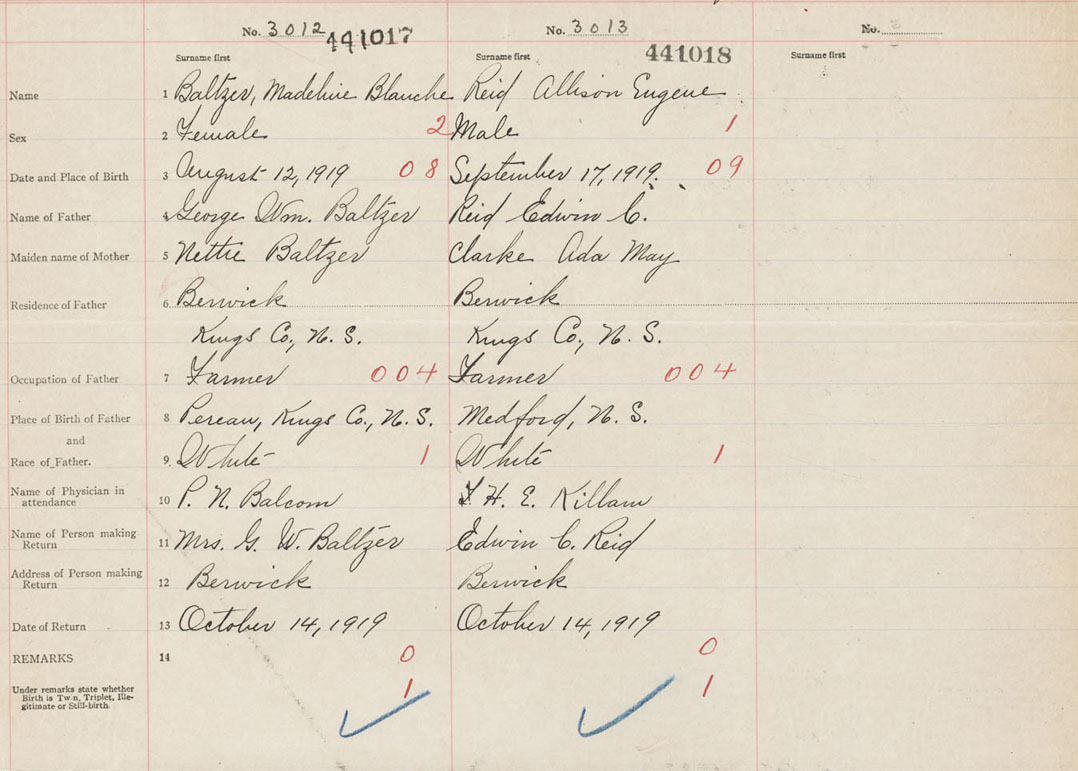 No. 3012 441017 No. 3013 441018 No.
Surname first Surname first Surname first
Name 1 Baltzer, Madeline Blanche Reid Allison Eugene
Sex 2 Female 2 Male 1
Date and Place of Birth 3 August 12, 1919 08 September 17, 1919. 09
Name of Father 4 George Wm. Baltzer Reid Edwin C.
Maiden name of Mother 5 Nettie Baltzer Clarke Ada May
Residence of Father 6 Berwick Berwick
Kings Co., N. S. Kings Co., N. S.
Occupation of Father 7 Farmer 004 Farmer 004
Place of Birth of Father 8 Pereau, Kings Co., N. S. Medford, N. S.
and
Race of Father. 9. White 1 White 1
Name of Physician in
attendance 10 P. N. Balcom H. E. Killam
Name of Person making
Return 11 Mrs. G. W. Baltzer Edwin C. Reid
Address of Person making
Return 12 Berwick Berwick
Date of Return 13 October 14, 1919 October 14, 1919
REMARKS 14 0 0
Under remarks state whether
Birth is Twin, Triplet, Ille-
gitimate or Still-birth. 1 1